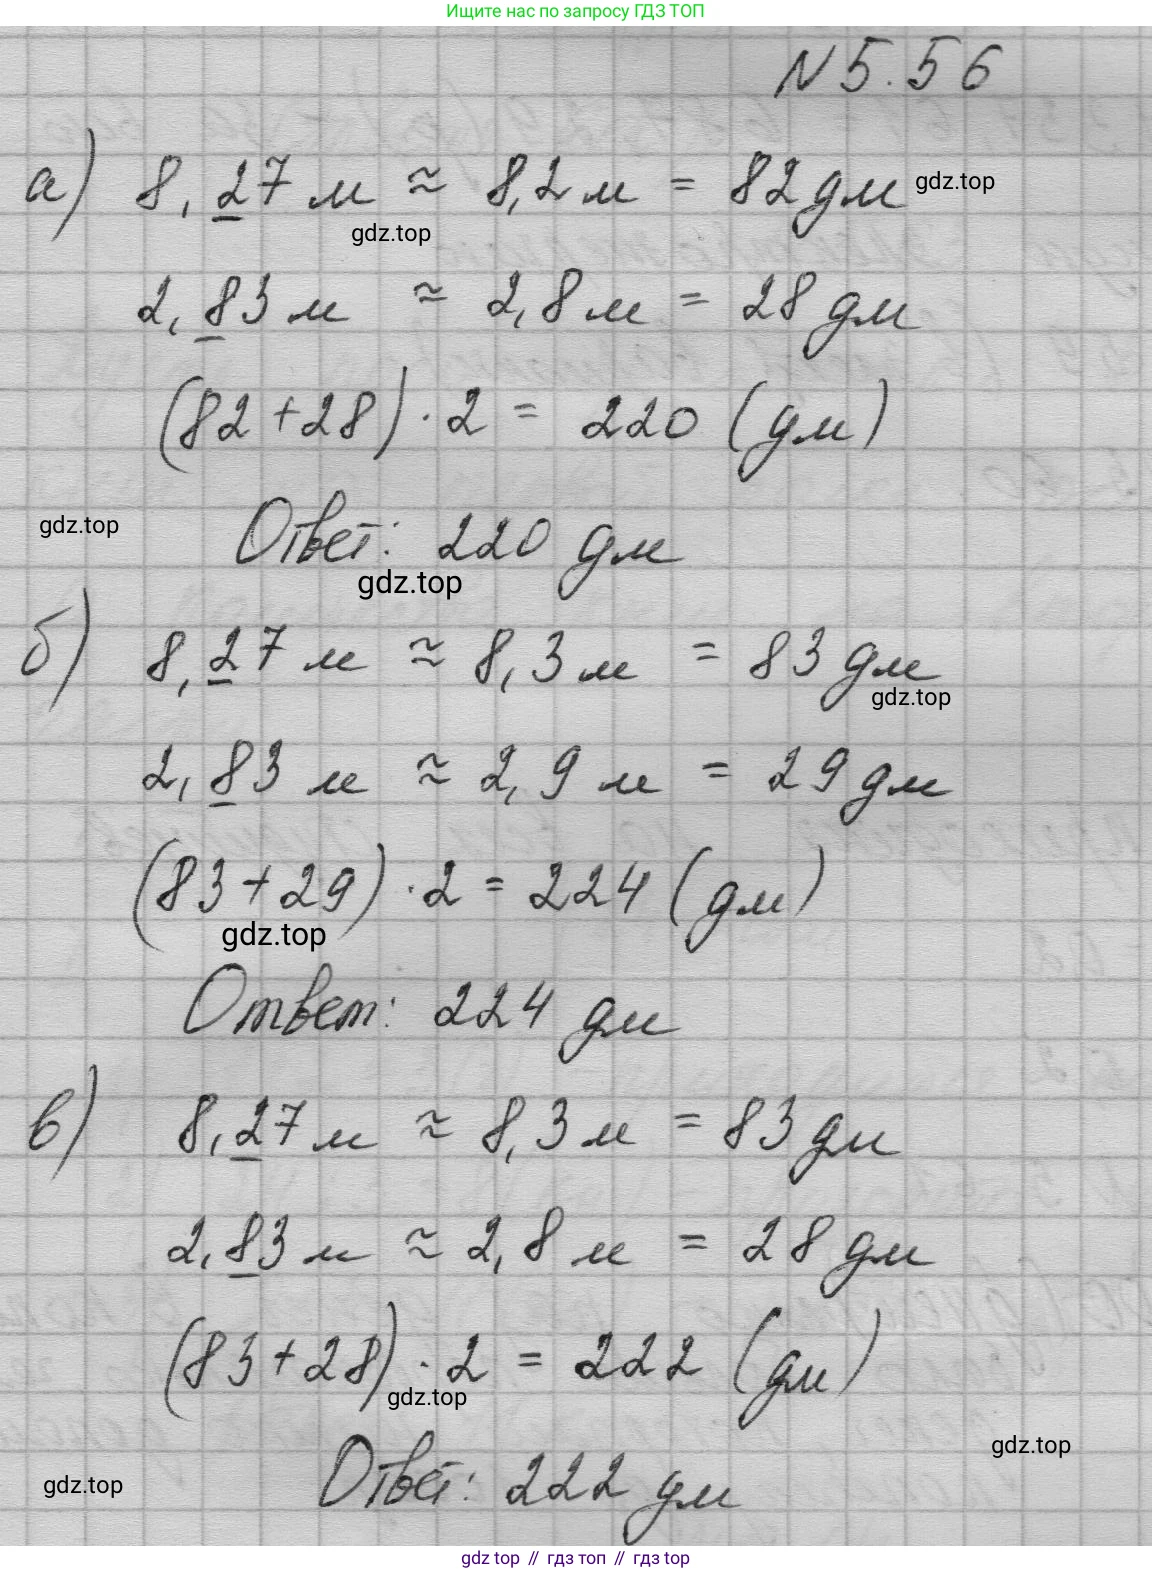 Ищите нас по запросу ГДЗ ТОП
N 5.56
а) 8,27 м ≈ 8,2 м = 82 дм
gdz.top
gdz.top
2,83 м ≈ 2,8 м = 28 дм
(82 + 28) · 2 = 220 (дм)
gdz.top
Ответ: 220 дм
gdz.top
б) 8,27 м ≈ 8,3 м = 83 дм
gdz.top
2,83 м ≈ 2,9 м = 29 дм
(83 + 29) · 2 = 224 (дм)
gdz.top
Ответ: 224 дм
в) 8,27 м ≈ 8,3 м = 83 дм
2,83 м ≈ 2,8 м = 28 дм
(83 + 28) · 2 = 222 (дм)
gdz.top
gdz.top
Ответ: 222 дм
gdz.top
gdz top // гдз топ // gdz top